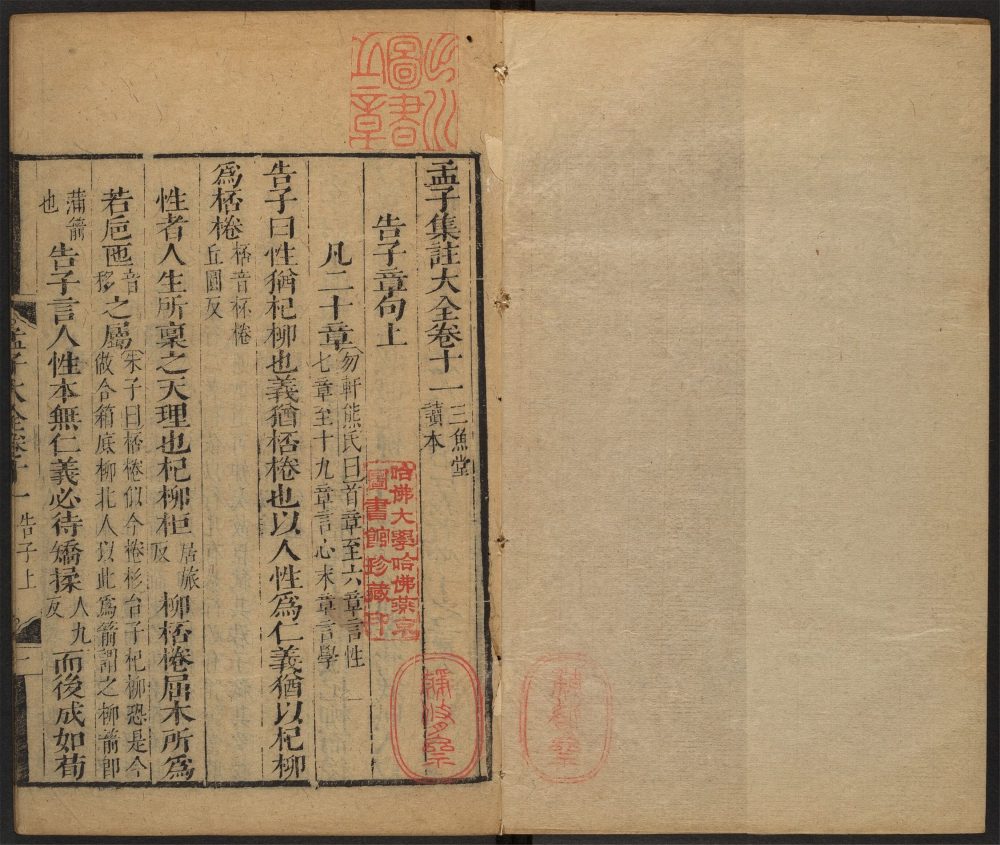 孟子集註大全卷十一
三魚堂
讀本
告子章句上
凡二十章
勿軒熊氏曰首章至六章言性
七章至十九章言心末章言學
告子曰性猶杞柳也義猶桮棬也以人性爲仁義猶以杞柳
爲桮棬
桮音杯棬
丘圓反
性者人生所稟之天理也杞柳柜
居旅
反
柳桮棬屈木所爲
若巵匜
音
移
之屬
朱子曰桮棬似今棬杉台子杞柳恐是今
做合箱底柳北人以此爲箭謂之柳箭卽
蒲箭
也
告子言人性本無仁義必待矯揉
人九
反
而後成如荀
孟子大全卷十一
告子上
一
圖書
之章
哈佛大學哈佛燕京
圖書館珍藏印